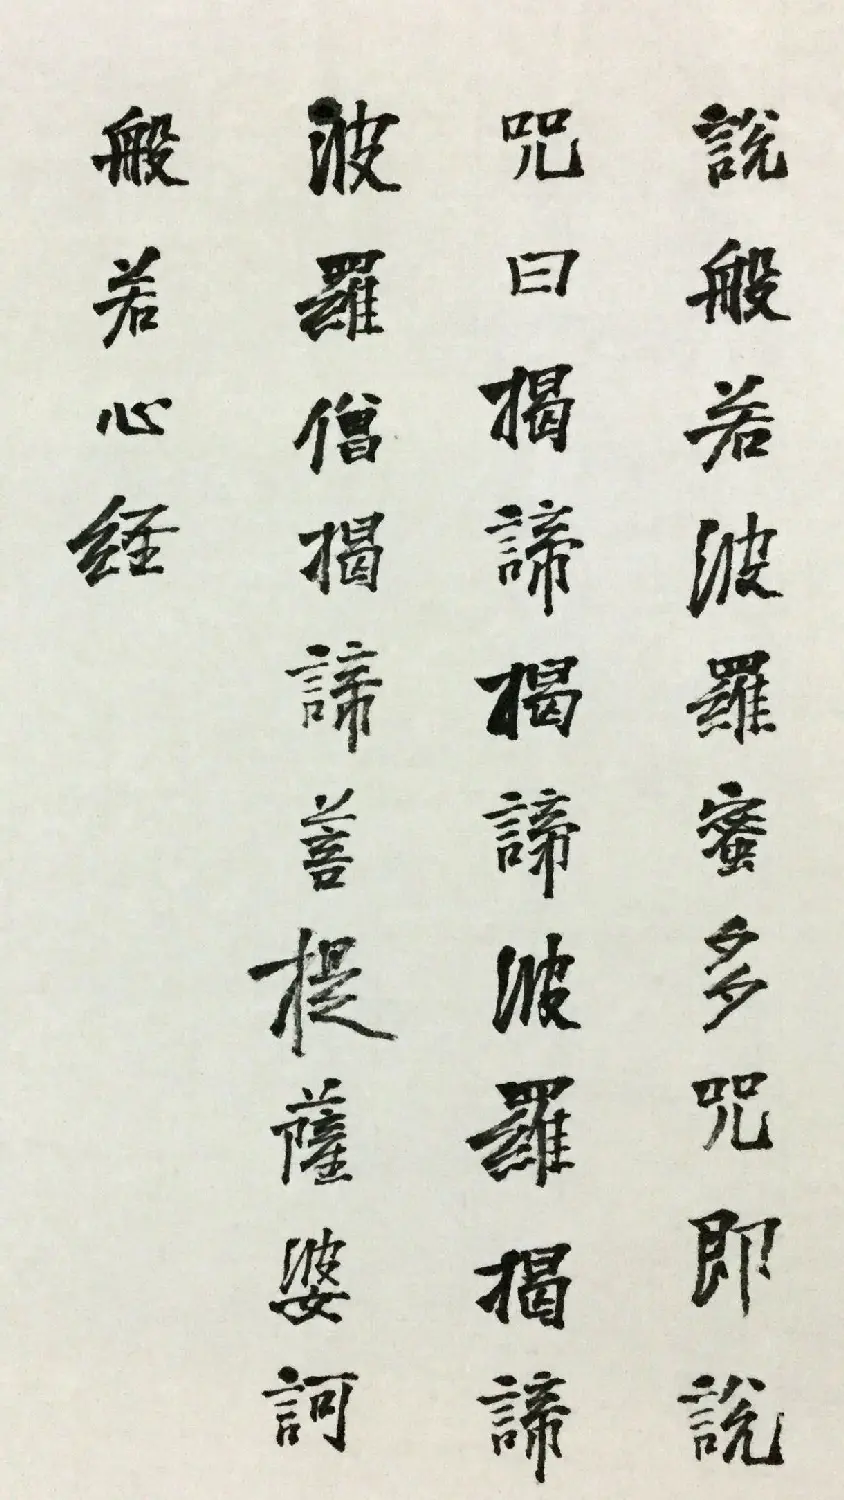 說般若波羅蜜多咒即說
咒曰揭諦揭諦波羅揭諦
波羅僧揭諦菩提薩婆訶
般若心経